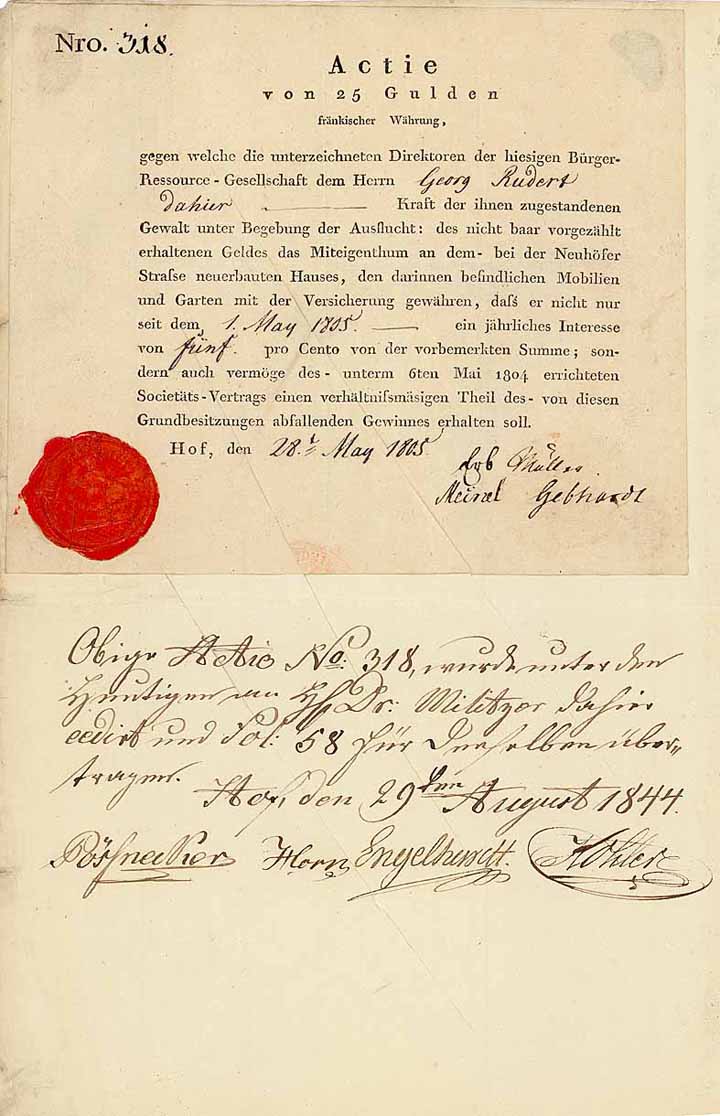 Nro. 318.
Actie
von 25 Gulden
fränkischer Währung,
gegen welche die unterzeichneten Direktoren der hiesigen Bürger-
Ressource-Gesellschaft dem Herrn Georg Rudert
dahier Kraft der ihnen zugestandenen
Gewalt unter Begebung der Ausflucht: des nicht baar vorgezählt
erhaltenen Geldes das Miteigenthum an dem- bei der Neuhöfer
Strafse neuerbauten Hauses, den darinnen befindlichen Mobilien
und Garten mit der Versicherung gewähren, dafs er nicht nur
seit dem 1. May 1805. ein jährliches Interesse
von fünf. pro Cento von der vorbemerkten Summe; son-
dern auch vermöge des- unterm 6ten Mai 1804 errichteten
Societäts-Vertrags einen verhältnifsmäsigen Theil des- von diesen
Grundbesitzungen abfallenden Gewinnes erhalten soll.
Hof, den 28. May 1805
Erb Müller.
Meinel Gebhardt
Obige Actie No: 318, wurde unter dem
Heutigen an H. Dr. Militzer dahier
cedirt und Fol: 58 für denselben über-
tragen.
Hof, den 29ten August 1844.
Pösnecker Horn Engelhardt. Köhler